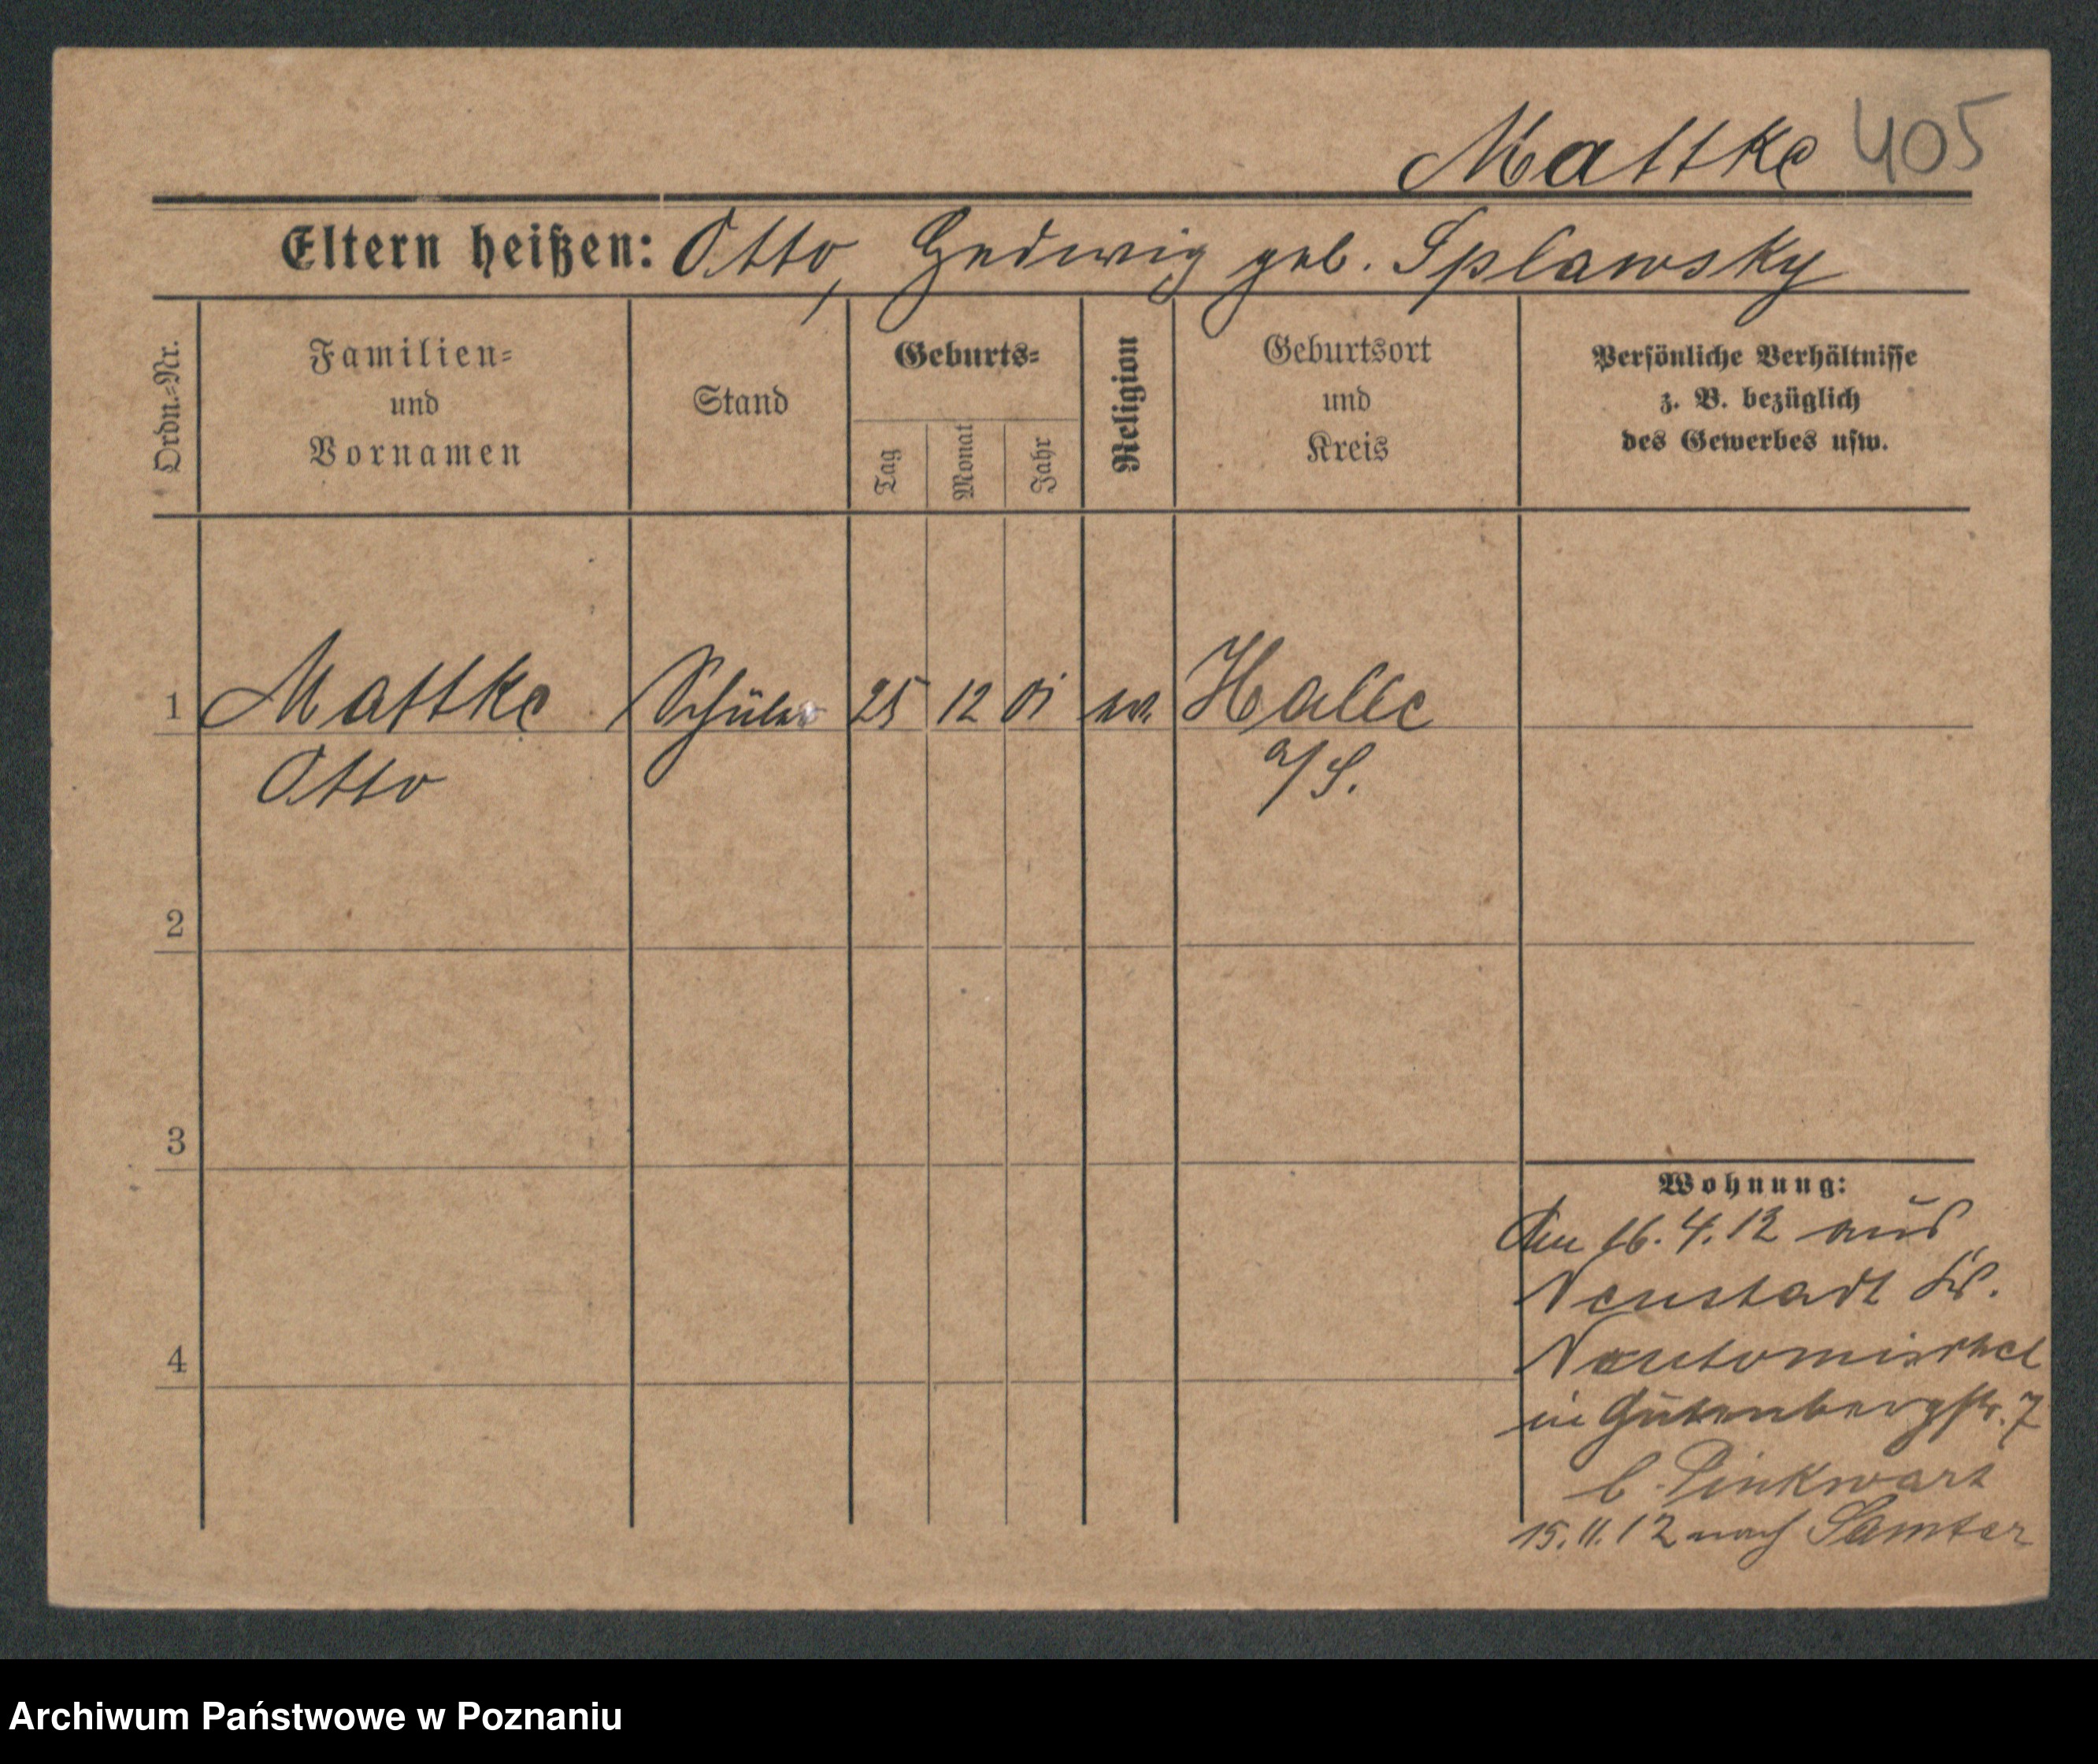 Mattke 405
Eltern heißen: Otto, Hedwig geb. Splawsky
Ordn.-Nr.
Familien-
und
Vornamen
Stand
Geburts-
Tag
Monat
Jahr
Religion
Geburtsort
und
Kreis
Persönliche Verhältnisse
z. B. bezüglich
des Gewerbes usw.
1 Mattke Schüler 25 12 01 ev. Halle
Otto a/S.
2
3
4
Wohnung:
Am 16.4.12 aus
Neustadt Kr.
Neutomischel
in Gutenbergstr. 7
b. Pinkwart
15.11.12 nach Samter
Archiwum Państwowe w Poznaniu